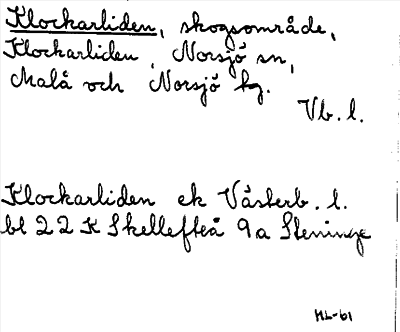 Klockarliden, skogsområde,
Klockarliden, Norsjö sn,
Malå och Norsjö kg.
Vb. l.
Klockarliden ek Västerb. l.
bl 22 K Skellefteå 9a Steninge
HL-61